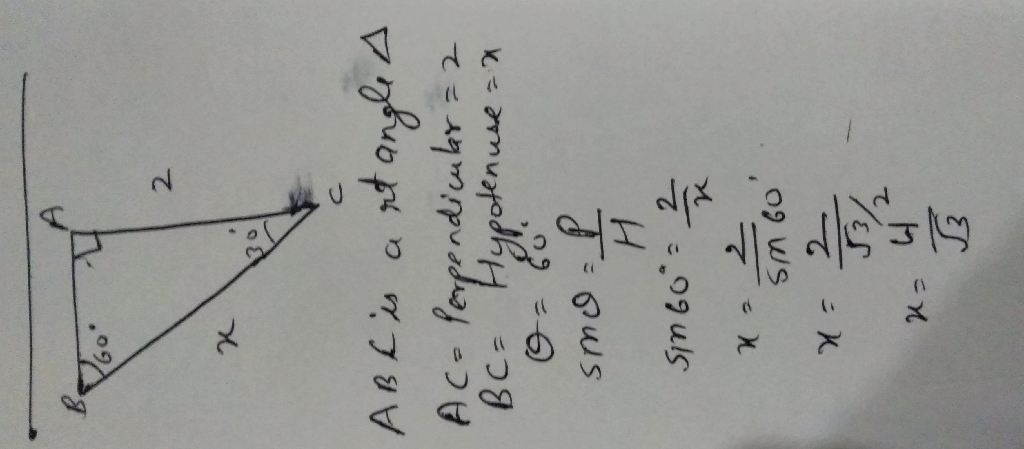 A
B
60°
2
30°
x
C
ABC is a rt angle △
AC = Perpendicular = 2
BC = Hypotenuse = x
θ = 60°
sinθ = P/H
sin60° = 2/x
x = 2/sin60°
x = 2/√3/2
x = 4/√3